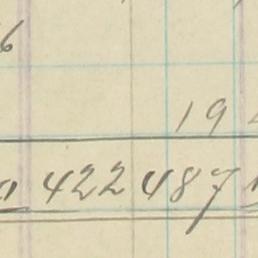 6
19
422 487